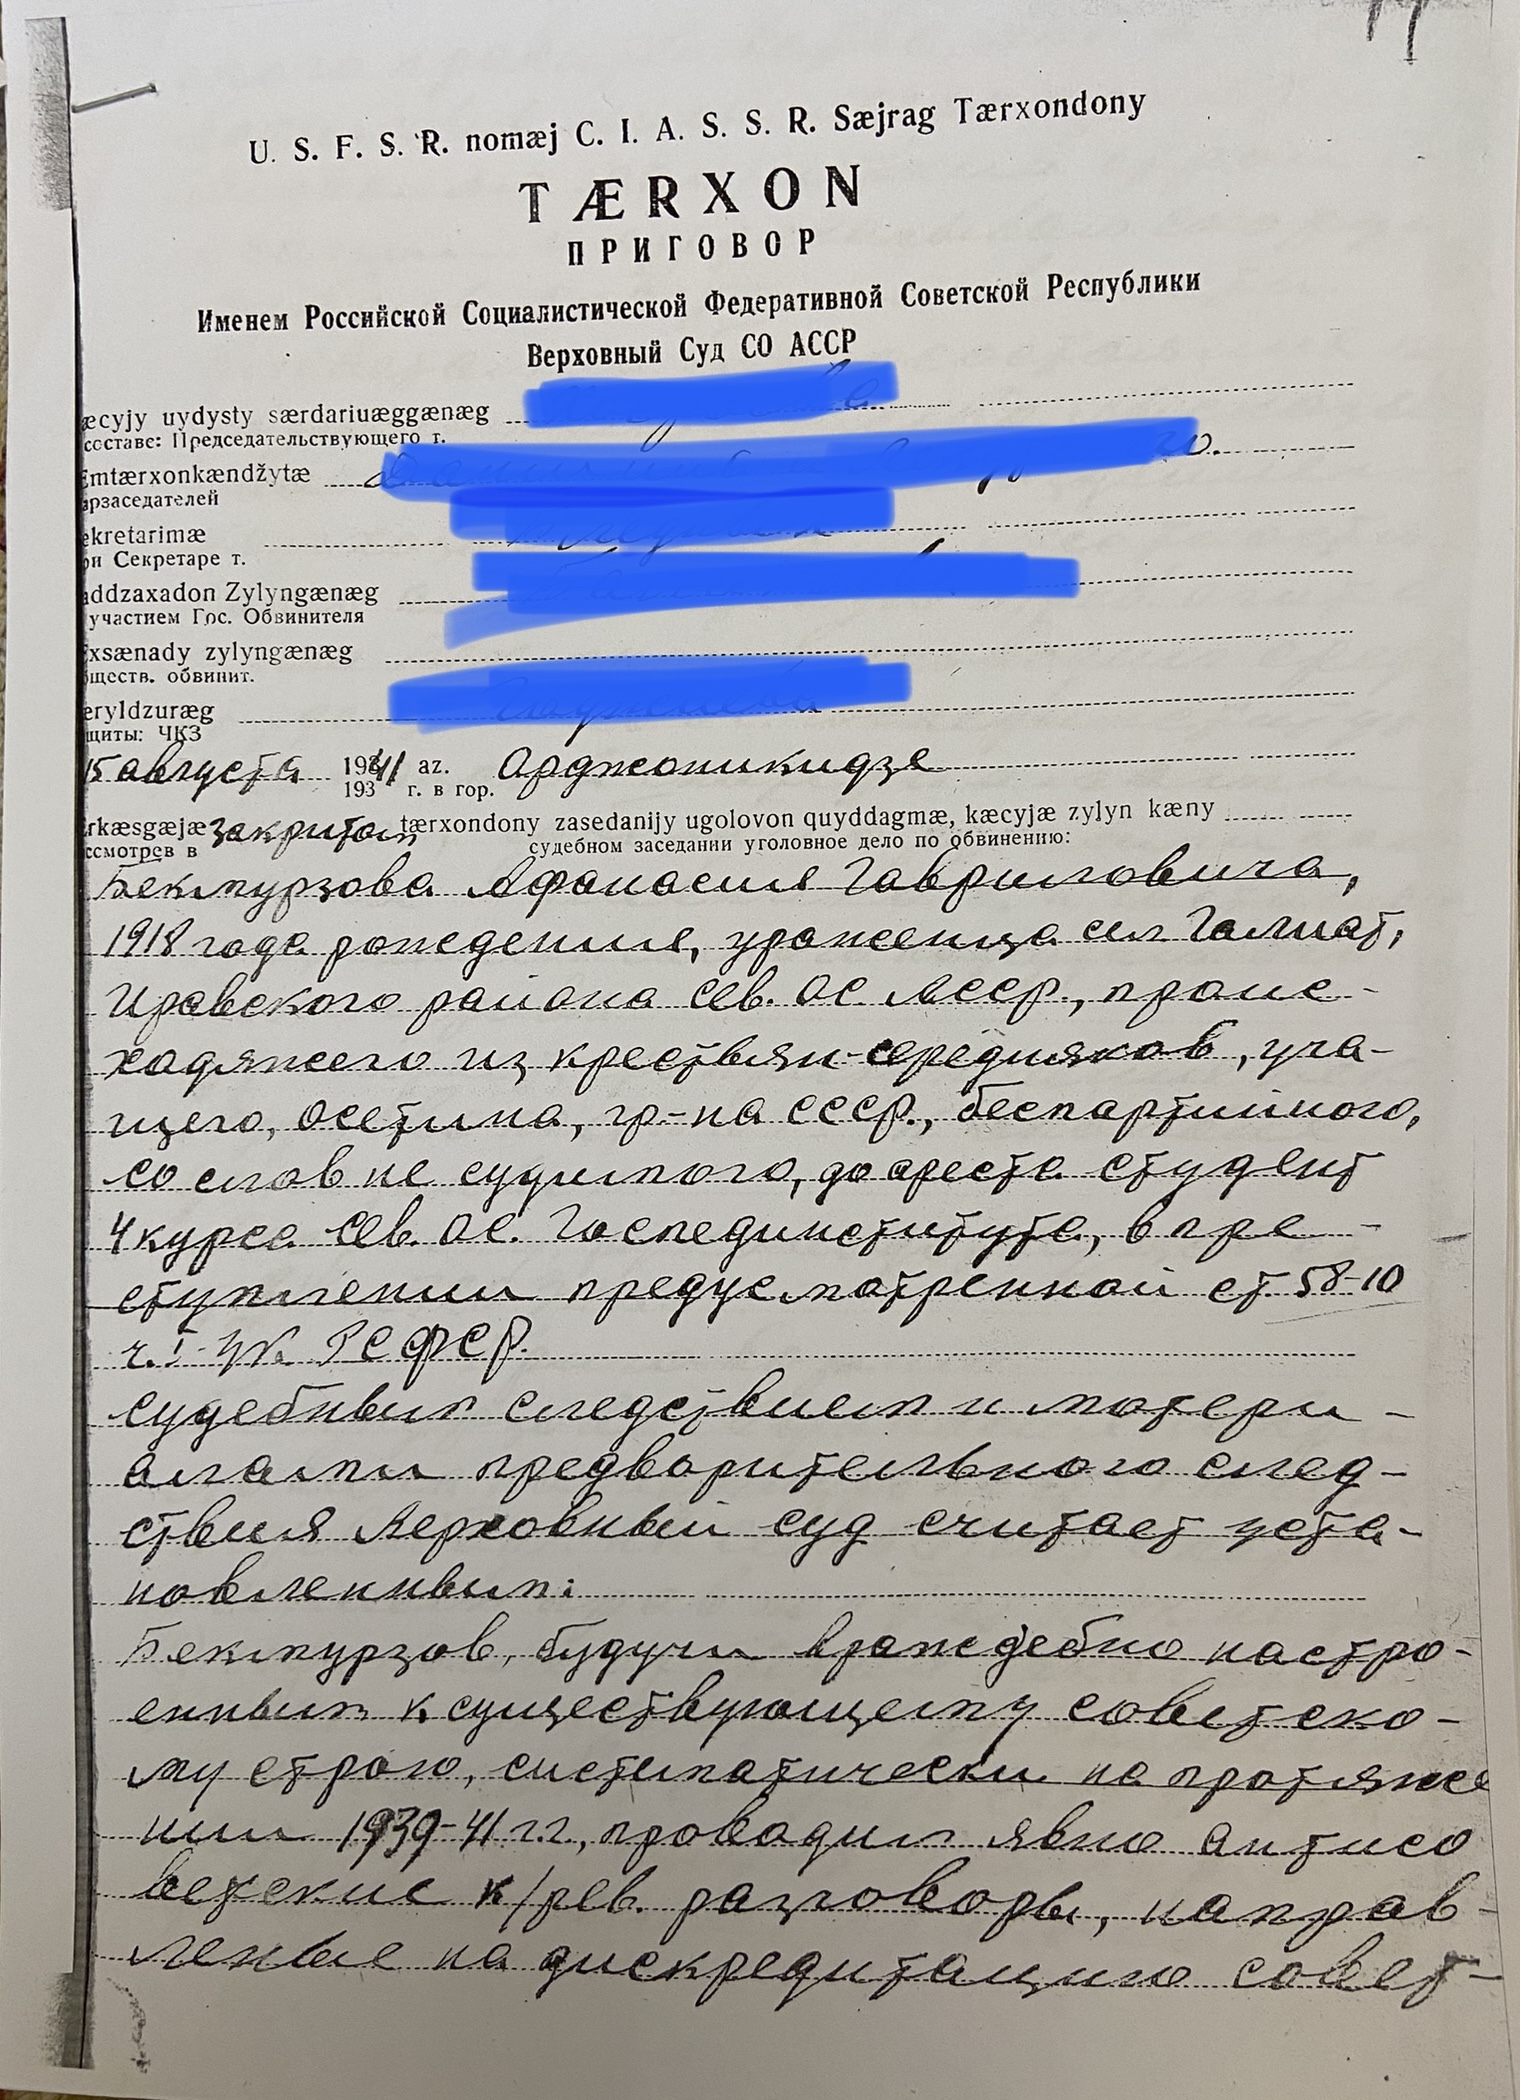 U. S. F. S. R. nomæj C. I. A. S. S. R. Særjag Tærxondony
TÆRXON
ПРИГОВОР
Именем Российской Социалистической Федеративной Советской Республики
Верховный Суд СО АССР
æcyjy uydysty særdariuæggænæg
составе: Председательствующего т.
mtærxonkændžytæ
арзаседателей
ekretarimæ
ри Секретаре т.
addzaxadon Zylyngænæg
участием Гос. Обвинителя
xsænady zylyngænæg
бществ. обвинит.
eryldzuræg
щиты: ЧКЗ
15 августа 1941 az. Орджоникидзе
193 г. в гор.
rkæsgæjæ закритом tærxondony zasedanijy ugolovon quyddagmæ, kæcyjæ zylyn kæny
ссмотрев в судебном заседании уголовное дело по обвинению:
Бекмурзова Афанасия Гавриловича,
1918 года рождения, уроженца сел Галиат,
Ирафского района Сев. Ос АССР, проис-
ходящего из крестьян-середняков, уча-
щего, осетина, гр-на СССР, беспартийного,
со слов не судимого, до ареста студент
4 курса Сев. Ос. Госпединститута, в пре-
ступлении предусмотренной ст. 58-10
ч. I УК РСФСР.
Судебным следствием и матери-
алами предварительного след-
ствия Верховный суд считает уста-
новленным:
Бекмурзов, будучи враждебно настро-
енным к существующему советско-
му строю, систематически на протяже
нии 1939-41 г.г., проводил явно антисо
ветские к/рев. разговоры, направ-
леные на дискредитацию совет-